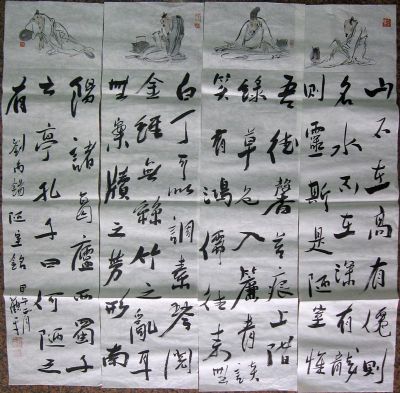 山不在高有僊則
名水不在深有龍
則靈斯是陋室惟
吾德馨苔痕上階
綠草色入簾青談
笑有鴻儒往來無
白丁可以調素琴閱
金經無絲竹之亂耳
無案牘之勞形南
陽諸葛廬西蜀子
雲亭孔子曰何陋之
有
劉禹錫陋室銘甲午二月